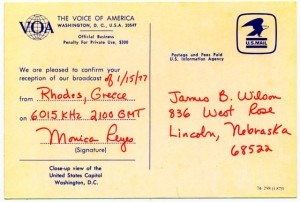 VOA
THE VOICE OF AMERICA
WASHINGTON, D. C., U.S.A. 20547
Official Business
Penalty For Private Use, $300
U.S. MAIL
Postage and Fees Paid
U. S. Information Agency
We are pleased to confirm your
reception of our broadcast of 1/15/77
from Rhodes, Greece
on 6015 KHz 2100 GMT
Monica Reyes
(Signature)
James B. Wilson
836 West Rose
Lincoln, Nebraska
68522
Close-up view of the
United States Capitol
Washington, D.C.